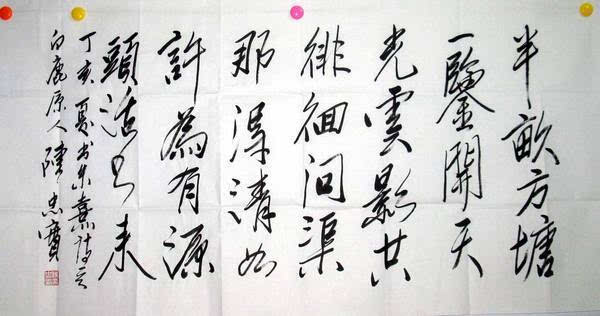 半畝方塘
一鑒開天
光雲影共
徘徊问渠
那得清如
許為有源
頭活水来
丁亥夏书朱熹诗
白鹿原人陳忠實